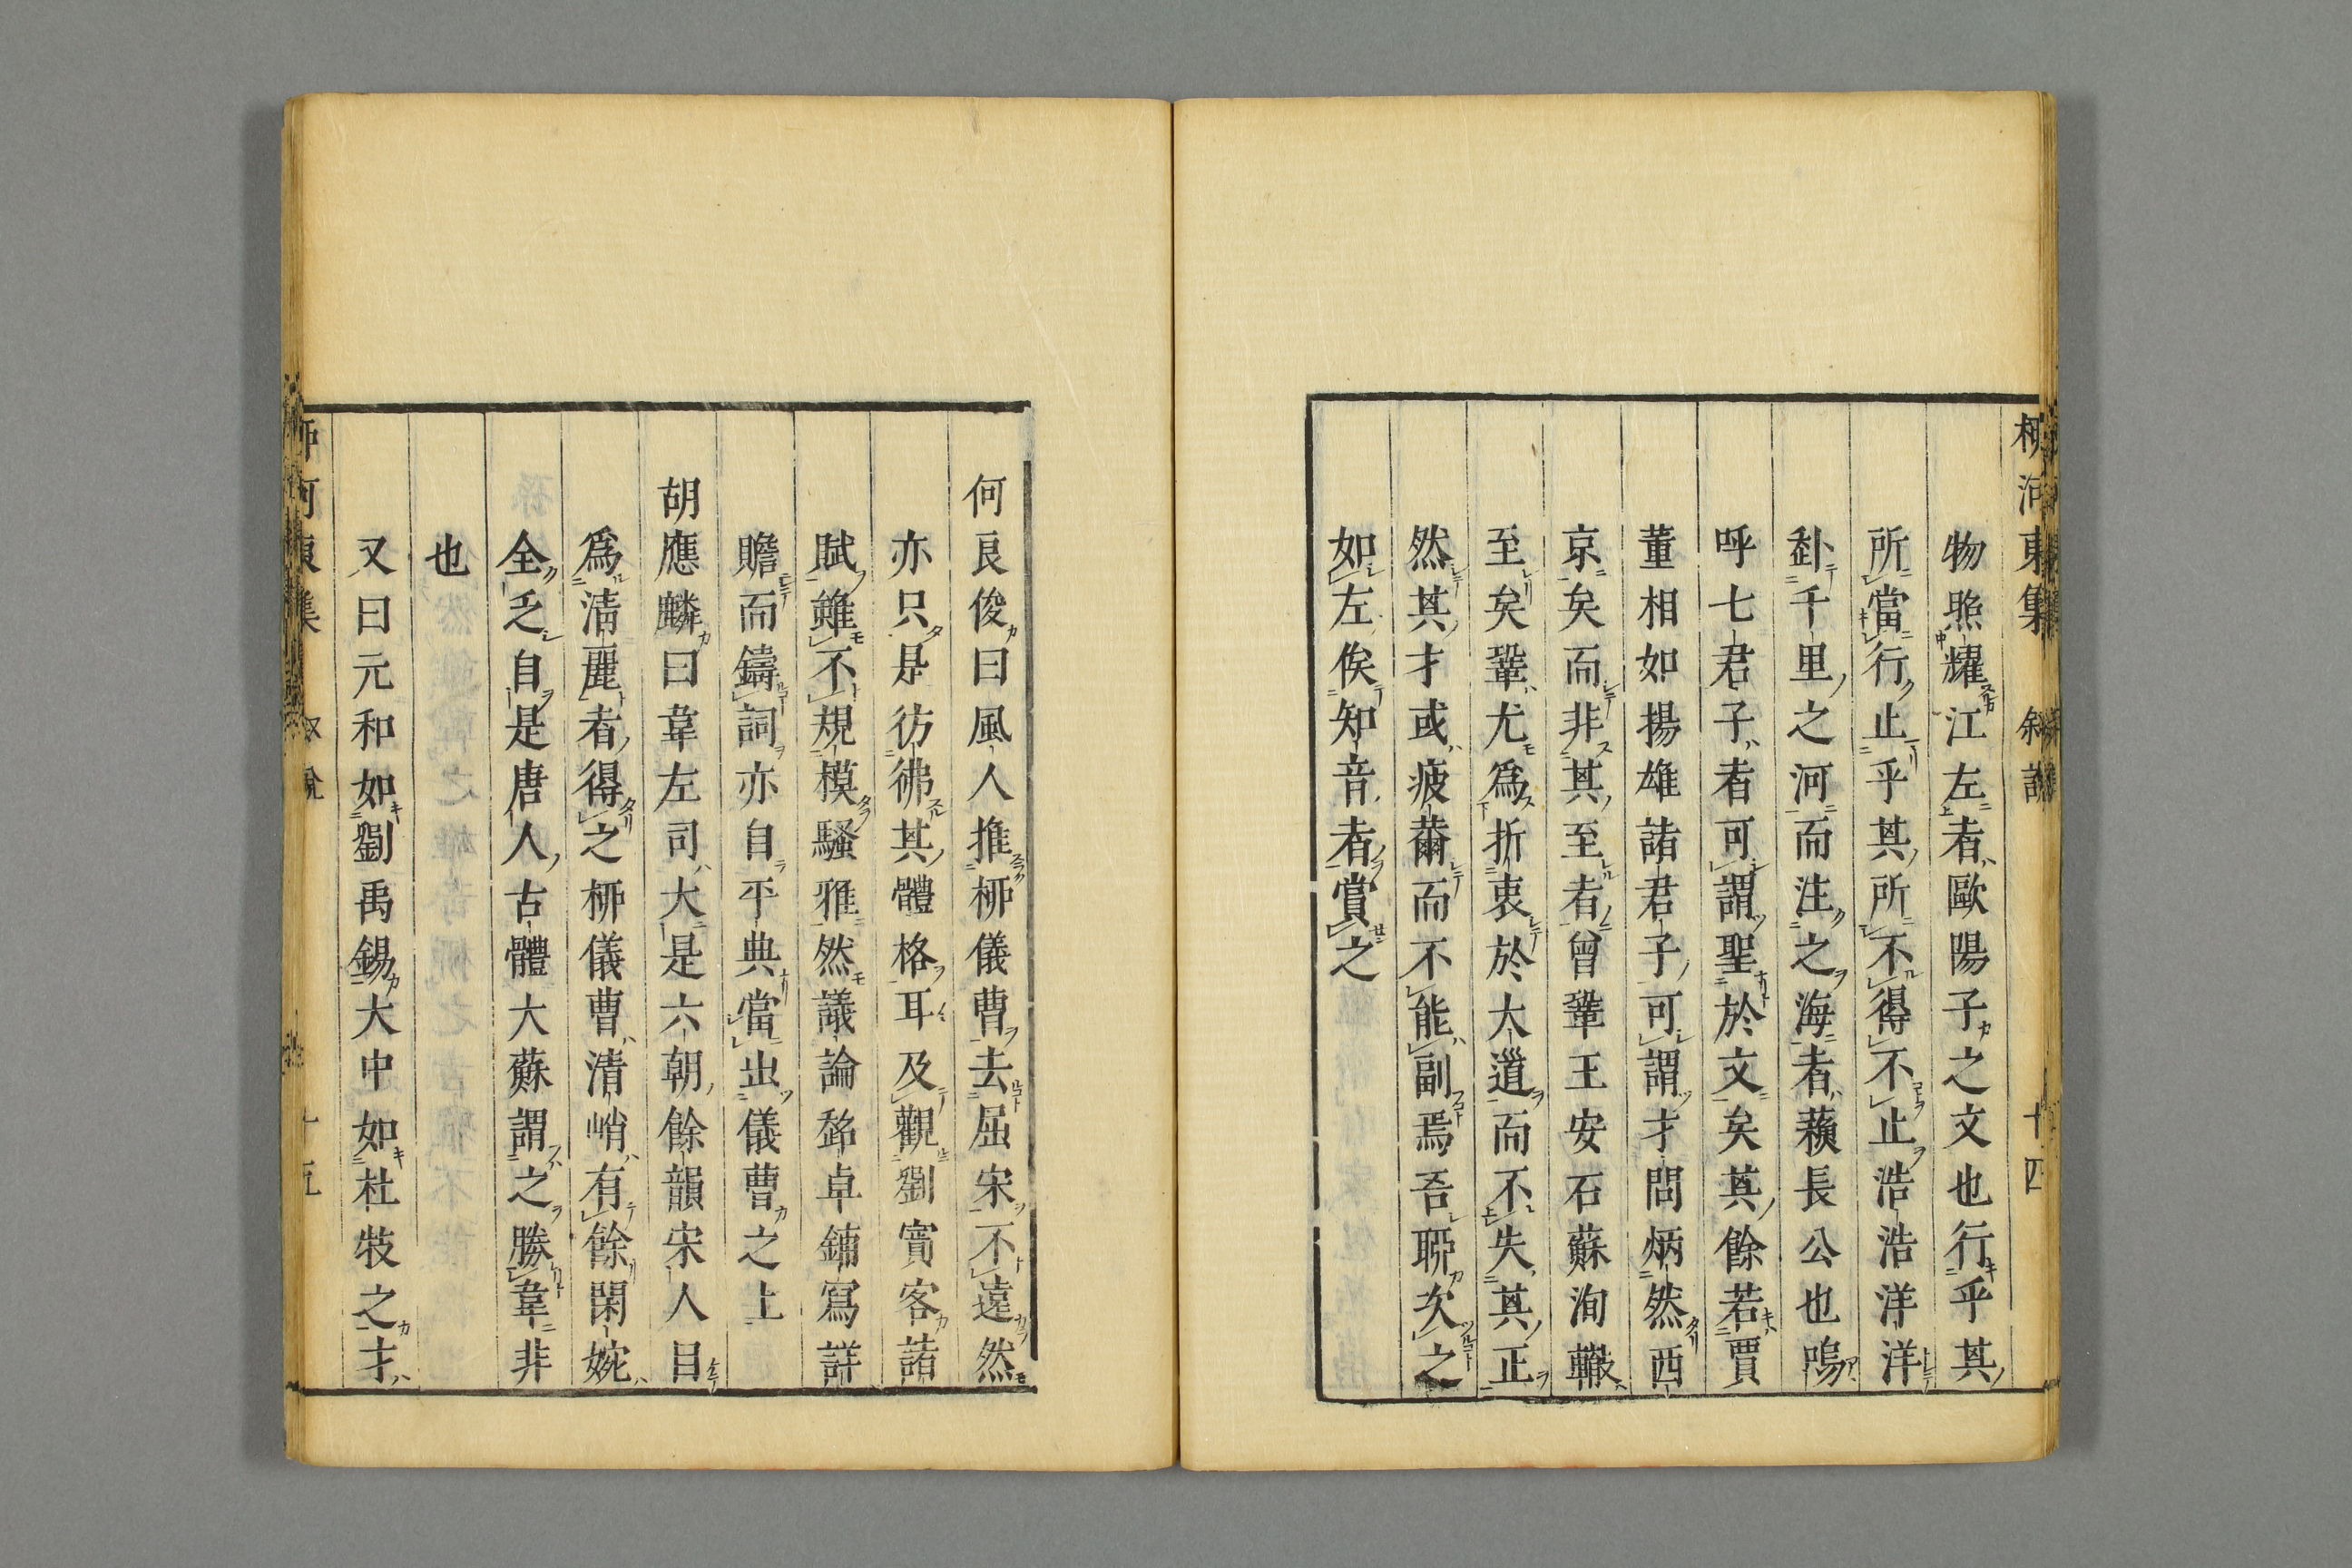 柳河東集　叙說　十四
物照耀江左者歐陽子之文也行乎其
所當行止乎其所不得不止浩浩洋洋
赴千里之河而注之海者蘓長公也嗚
呼七君子者可謂聖於文矣其餘若賈
董相如揚雄諸君子可謂才問炳然西
京矣而非其至者曾鞏王安石蘇洵轍
至矣鞏尤為折衷於大道而不失其正
然其才或疲薾而不能副焉吾聊次之
如左俟知音者賞之
何良俊曰風人推柳儀曹去屈宋不遠然
亦只是彷彿其體格耳及觀劉賓客諸
賦雖不規模騷雅然議論超卓鋪寫詳
贍而鑄詞亦自平典當出儀曹之上
胡應麟曰韋左司大是六朝餘韻宋人目
爲清麗者得之柳儀曹清峭有餘閑婉
全乏自是唐人古體大蘇謂之勝韋非
也
又曰元和如劉禹錫大中如杜牧之才
柳河東集　叙說　十五